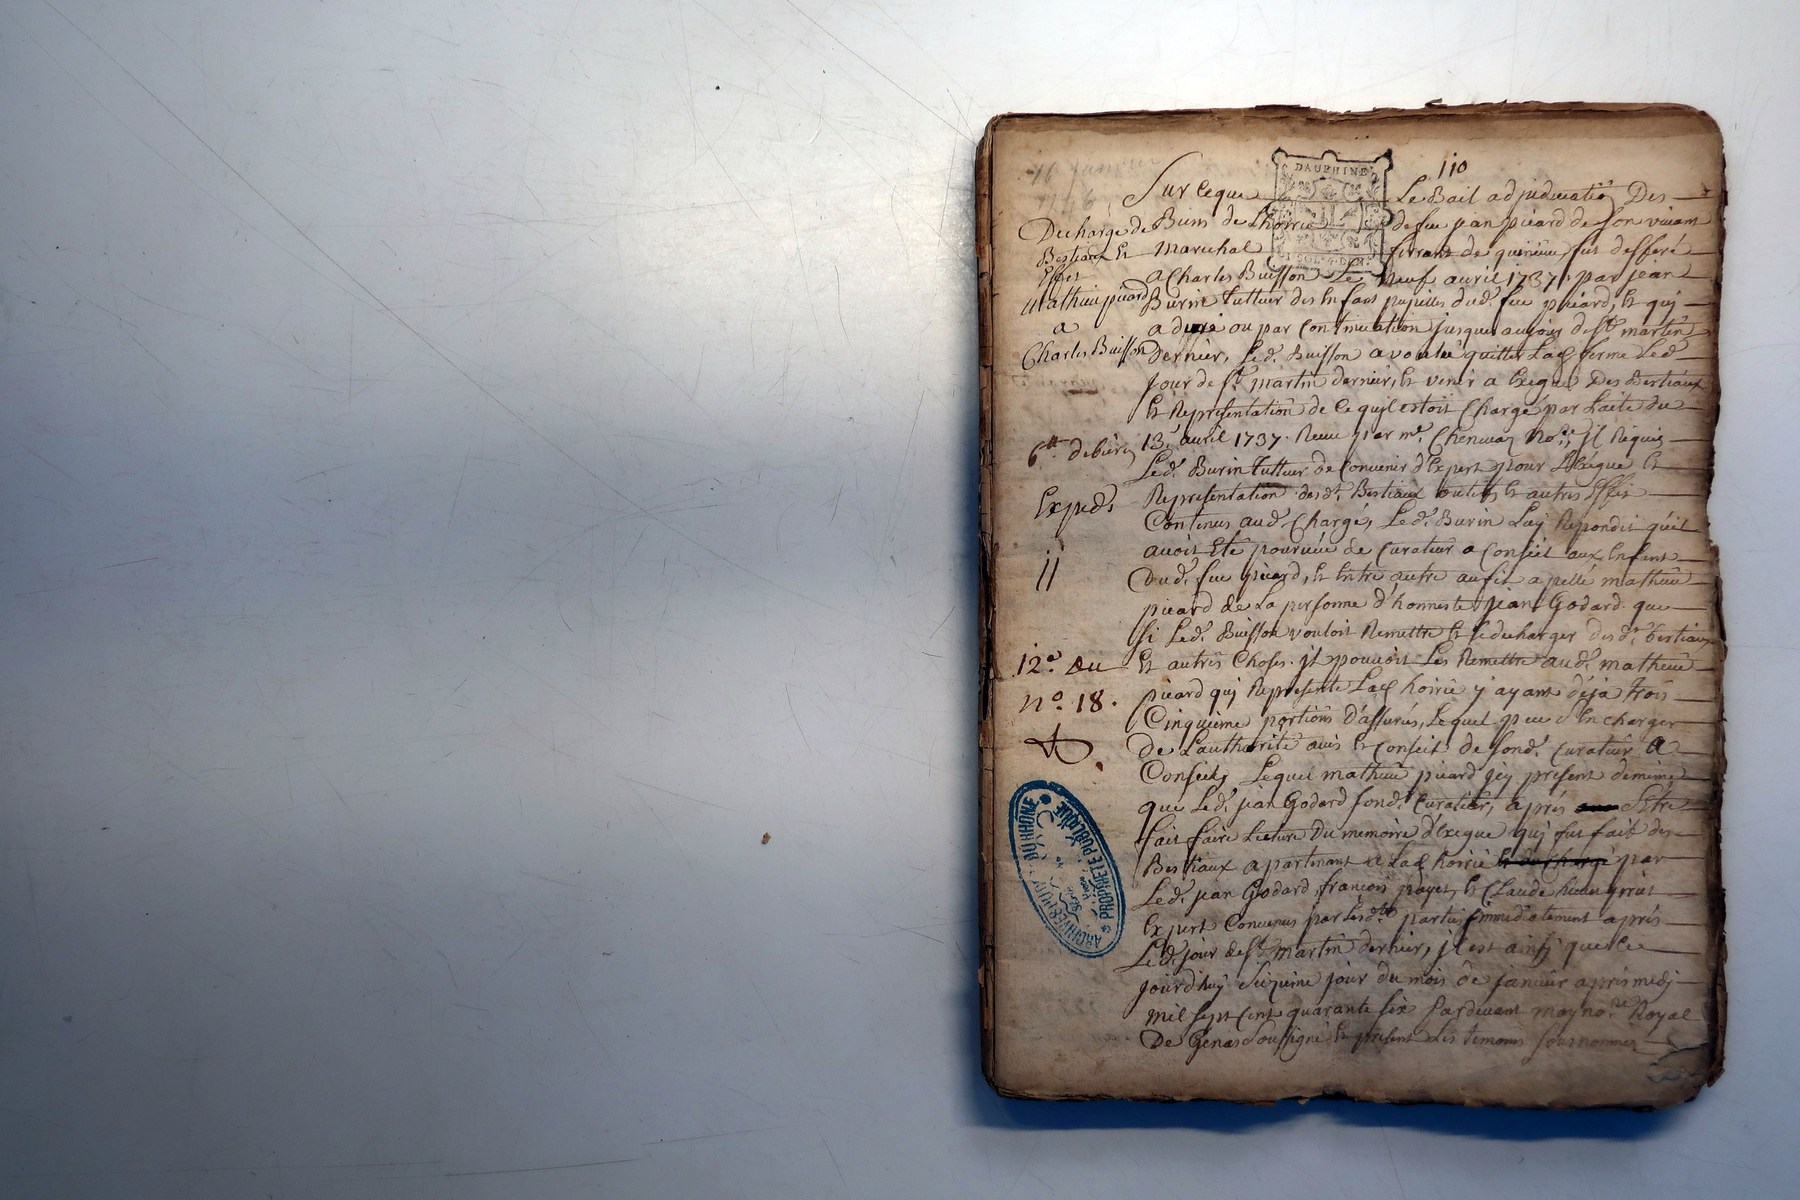 110
DAUPHINE
Sur ce que Le Bail adjudicatiõ Des
Biens de Lhoirie de feu jean picard de son vivant
marechal ferrant de quand fut defferé
a Charles Buisson Le Neuf avril 1737 par jean
Burin tutteur des Enfans pupilles dud. feu picard, et quj
a duré ou par Continuation jusques au jour de st. martin
dernier, Led. Buisson a voulu quitter Lad ferme Led
jour de st. martin dernier, et venir a Exegue Des Bestiaux
et Representation de ce quil estoit Chargé par Lacte du
13e. avril 1737. Receu par me. nore, jl Requis
Led. Burin tutteur de Convenir d'Expert pour Lexegue et
Representation desdt. Bestiaux outils et autres Effets
Contenus aud. Chargé, Led. Burin Luy Repondit quil
avoit Eté pourvüe de Curateur a Conseil aux Enfant
Dud. feu picard, et Entre autre au fils apellé mathieu
picard de La personne d'honneste jean Godard que
si Led. Buisson vouloit Remettre et se decharger desdt. bestiaux
Et autres Choses jl pouvoit Les Remettre aud. mathieu
picard quj Represente Lad hoirie y ayant déja trois
Cinquieme portions d'assurés, Lequel peu s'En charger
De Lauthorité avis et Conseil de sond. Curateur a
Conseils Lequel mathieu picard jcy present de mème
que Led. jean Godard sond. Curateur, aprés s'Etre
fait faire Lecture Du memoire d'Exegue quj fut fait des
Bestiaux apartenant a Lad hoirie par
Led. jean Godard, françois payet, et Claude
Expert Convenus par Lesdtes parties jmmediatement aprés
Led. jour de st. martin dernier, jl est ainsj que ce
jourdhuy Sixieme jour du mois de janvier aprés midj
mil sept Cent quarante six Pardevant moy nore. Royal
De Genas Soussigné et present Les temoins sousnommes
Decharge de
Bestiaux et
Effets
Mathieu picard
a
Charles Buisson
Expeds
12e. Du
no. 18.
ARCHIVES DU RHONE
PROPRIETE PUBLIQUE